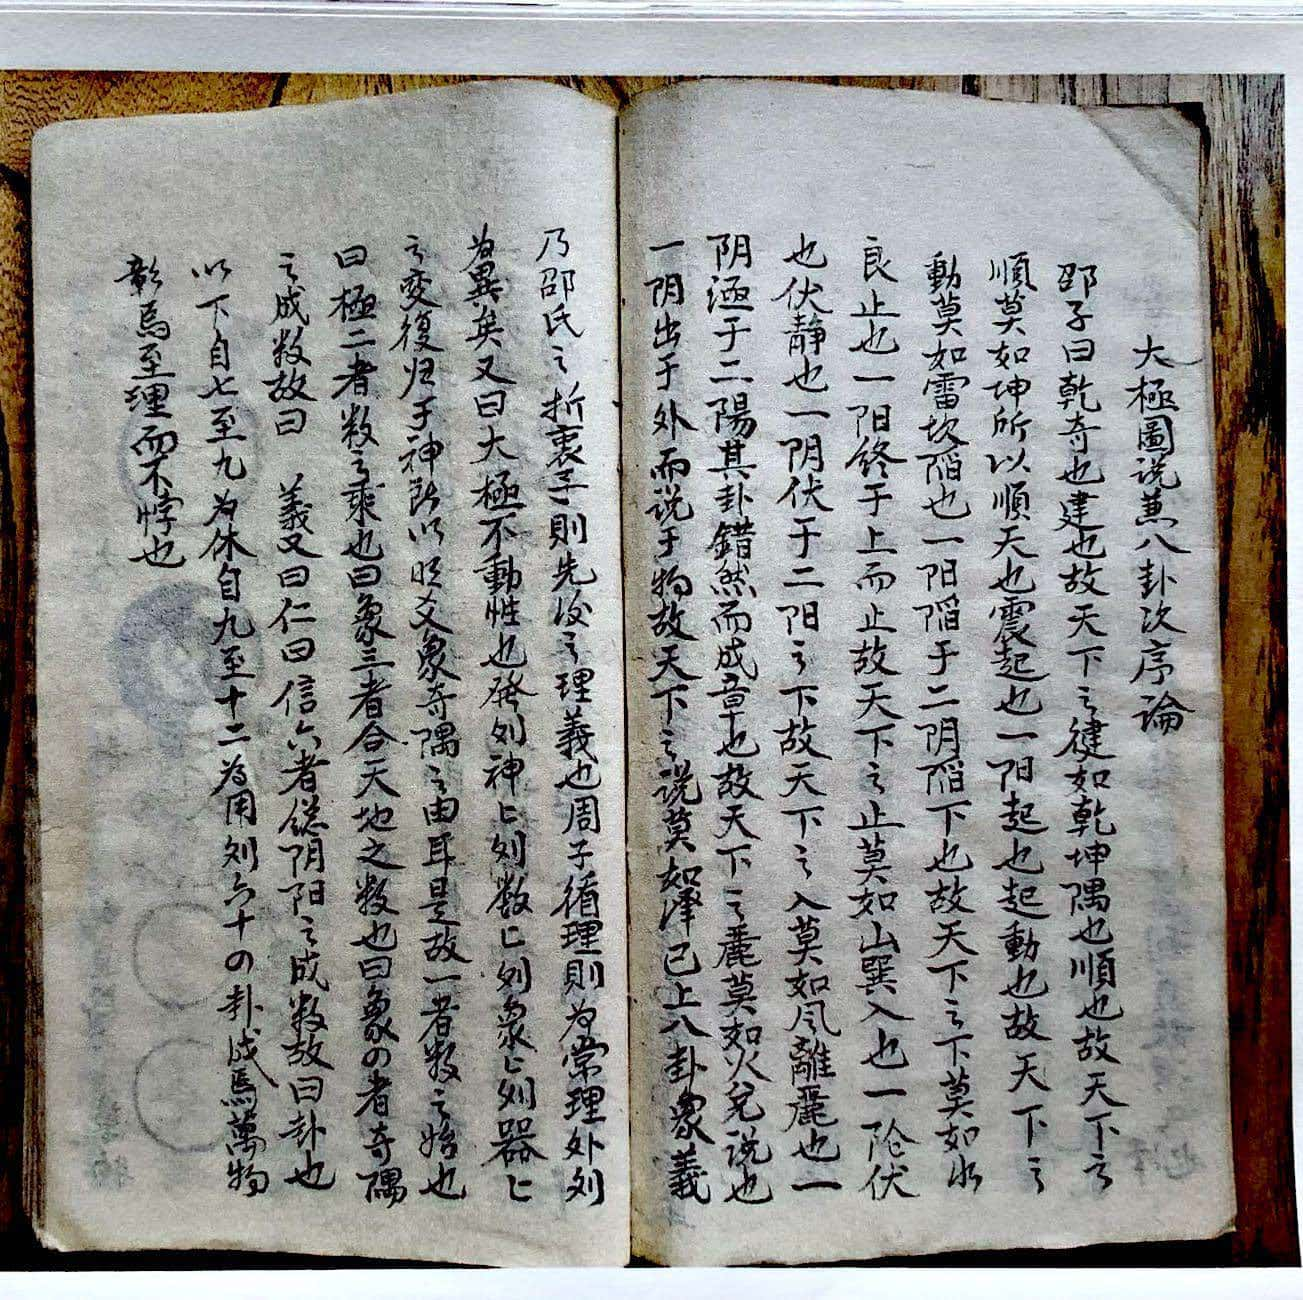 大極圖说兼八卦次序论
邵子曰乾奇也建也故天下之健如乾坤隅也順也故天下之
順莫如坤所以順天也震起也一阳起也起動也故天下之
動莫如雷坎陷也一阳陷于二阴陷下也故天下之下莫如水
良止也一阳终于上而止故天下之止莫如山巽入也一阴伏
也伏静也一阴伏于二阳之下故天下之入莫如风離麗也一
阴極于二陽其卦錯然而成章也故天下之麗莫如火兌说也
一阴出于外而说于物故天下之说莫如泽已上八卦象義
乃邵氏之折衷予則先后之理義也周子循理則为常理外则
为異矣又曰大極不動性也発则神匕则数匕则象匕则器匕
之变復归于神所以明爻象奇隅之由耳是故一者数之始也
曰極二者数之乘也曰象三者合天地之数也曰象の者奇隅
之成数故曰 義又曰仁曰信六者總阴阳之成数故曰卦也
以下自七至九为休自九至十二为用则六十の卦成焉萬物
彰焉至理而不悖也